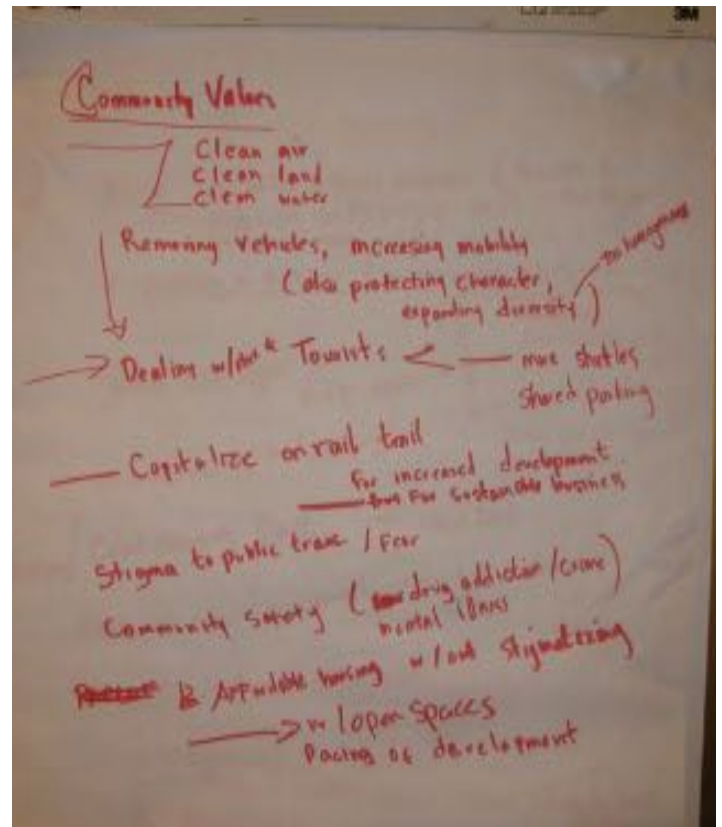 3M
Community Values
Clean air
Clean land
Clean water
Removing vehicles, increasing mobility
(also protecting character,
expanding diversity)
Dealing w/ Tourists
more shuttles
shared parking
Capitalize on rail trail
for increased development
for sustainable business
Stigma to public trans / Fear
Community Safety (drug addiction / crime)
mental illness
Affordable housing w/out stigmatizing
w/ open spaces
Pacing of development